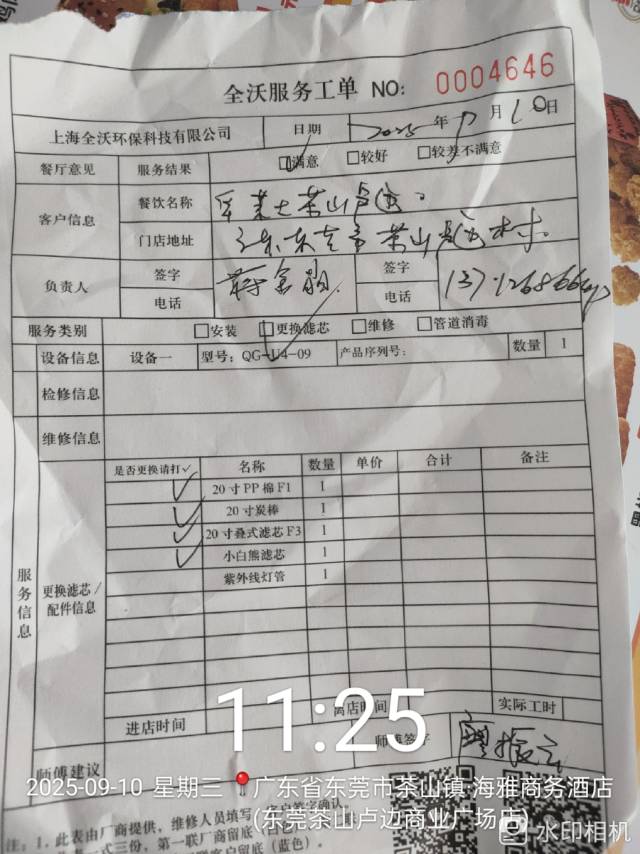 全沃服务工单 NO: 0004646
上海全沃环保科技有限公司 日期 2025年 月10日
餐厅意见 服务结果 ☑满意 □较好 □较差不满意
客户信息 餐饮名称 茶山卢边
门店地址 广东东莞市茶山卢边村
负责人 签字 签字
电话 电话
服务类别 □安装 ☑更换滤芯 □维修 □管道消毒
设备信息 设备一 型号: QG-U4-09 产品序列号: 数量 1
检修信息
维修信息
服务信息
更换滤芯/配件信息
是否更换请打✓ 名称 数量 单价 合计 备注
✓ 20寸PP棉F1 1
✓ 20寸炭棒 1
✓ 20寸叠式滤芯F3 1
✓ 小白熊滤芯 1
紫外线灯管 1
进店时间 离店时间 实际工时
师傅建议 师傅签字
11:25
2025-09-10 星期三 广东省东莞市茶山镇·海雅商务酒店
(东莞茶山卢边商业广场店)
注: 1. 此表由厂商提供, 维修人员填写, 客户签字确认。
一式三份, 第一联厂商留底 客户留底(蓝色)。
水印相机